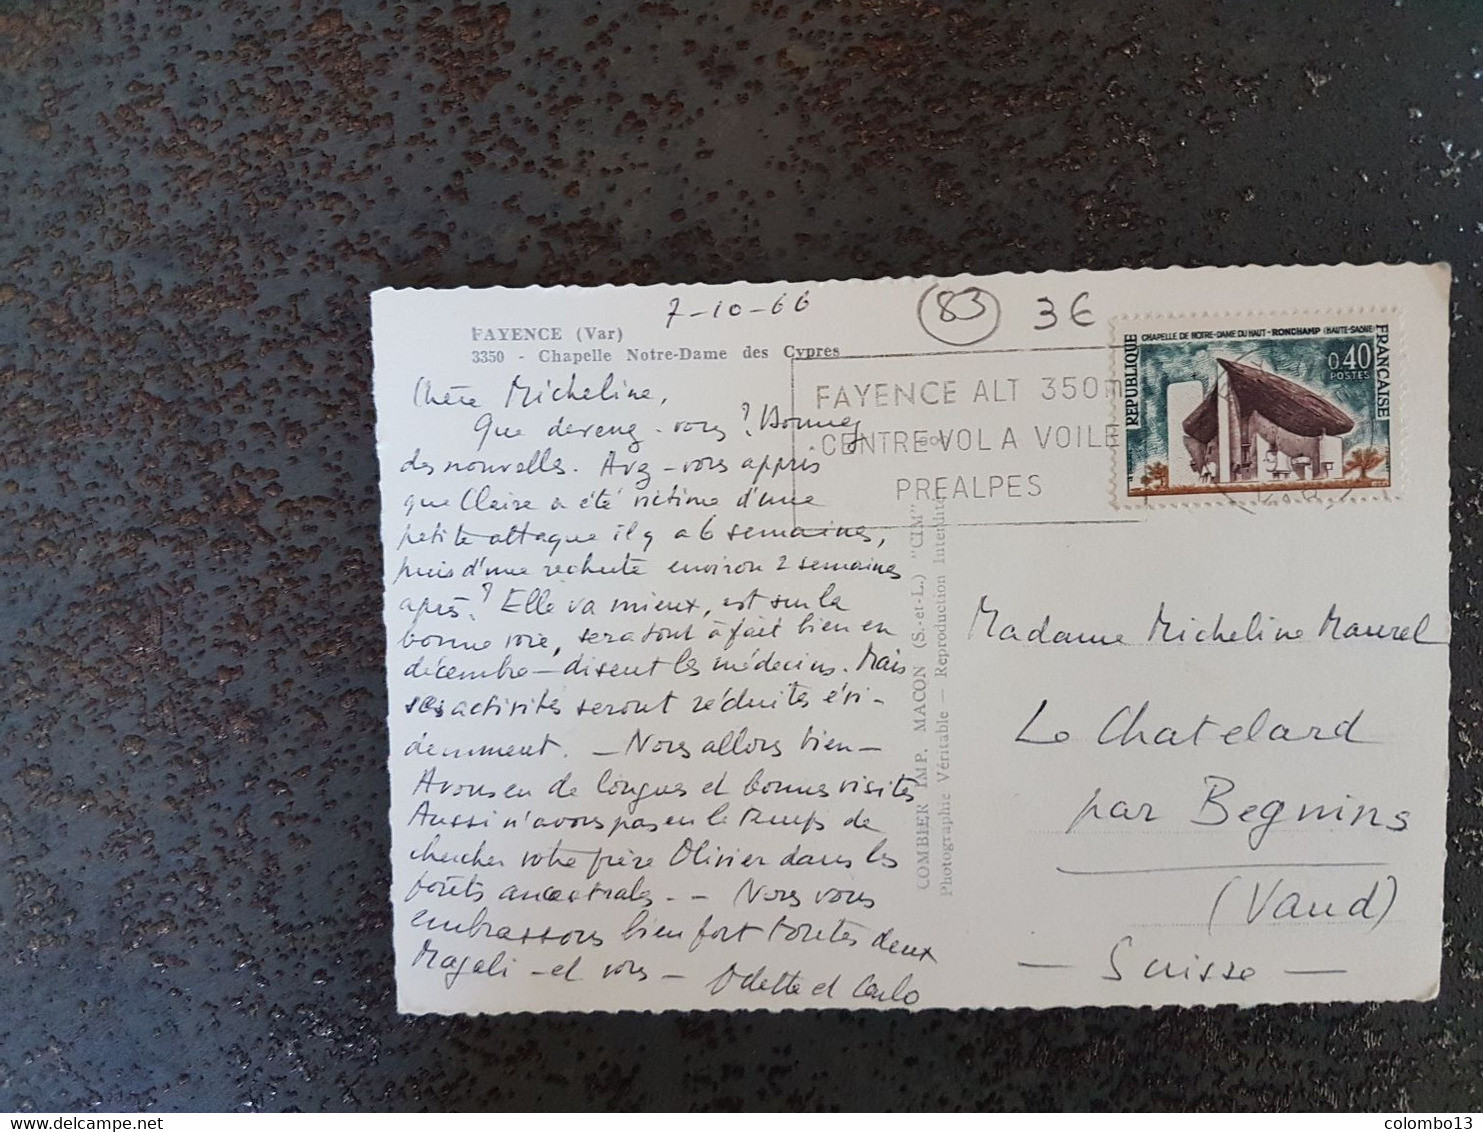 7-10-66
83
3€
FAYENCE (Var)
3350 - Chapelle Notre-Dame des Cyprès
Chère Micheline,
Que devenez-vous? Donnez
des nouvelles. Avez-vous appris
que Claire a été victime d'une
petite attaque il y a 6 semaines,
puis d'une rechute environ 2 semaines
après? Elle va mieux, est sur la
bonne voie, sera tout à fait bien en
décembre - disent les médecins. Mais
ses activités seront réduites évi-
demment. - Nous allons bien -
Avons eu de longues et bonnes visites
Aussi n'avons pas eu le temps de
chercher votre frère Olivier dans les
forêts ancestrales. - Nous vous
embrassons bien fort toutes deux
Magali - et vous - Odette et Carlo
COMBIER IMP. MACON (S.-et-L.) "CIM"
Photographie Véritable — Reproduction Interdite
FAYENCE ALT 350m
CENTRE VOL A VOILE
PREALPES
CHAPELLE DE NOTRE-DAME DU HAUT - RONCHAMP (HAUTE-SAÔNE)
REPUBLIQUE
FRANÇAISE
0,40
POSTES
Madame Micheline Maurel
Le Chatelard
par Begnins
(Vaud)
- Suisse -
colombo13